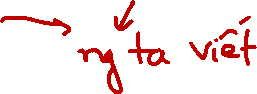 ng ta viết